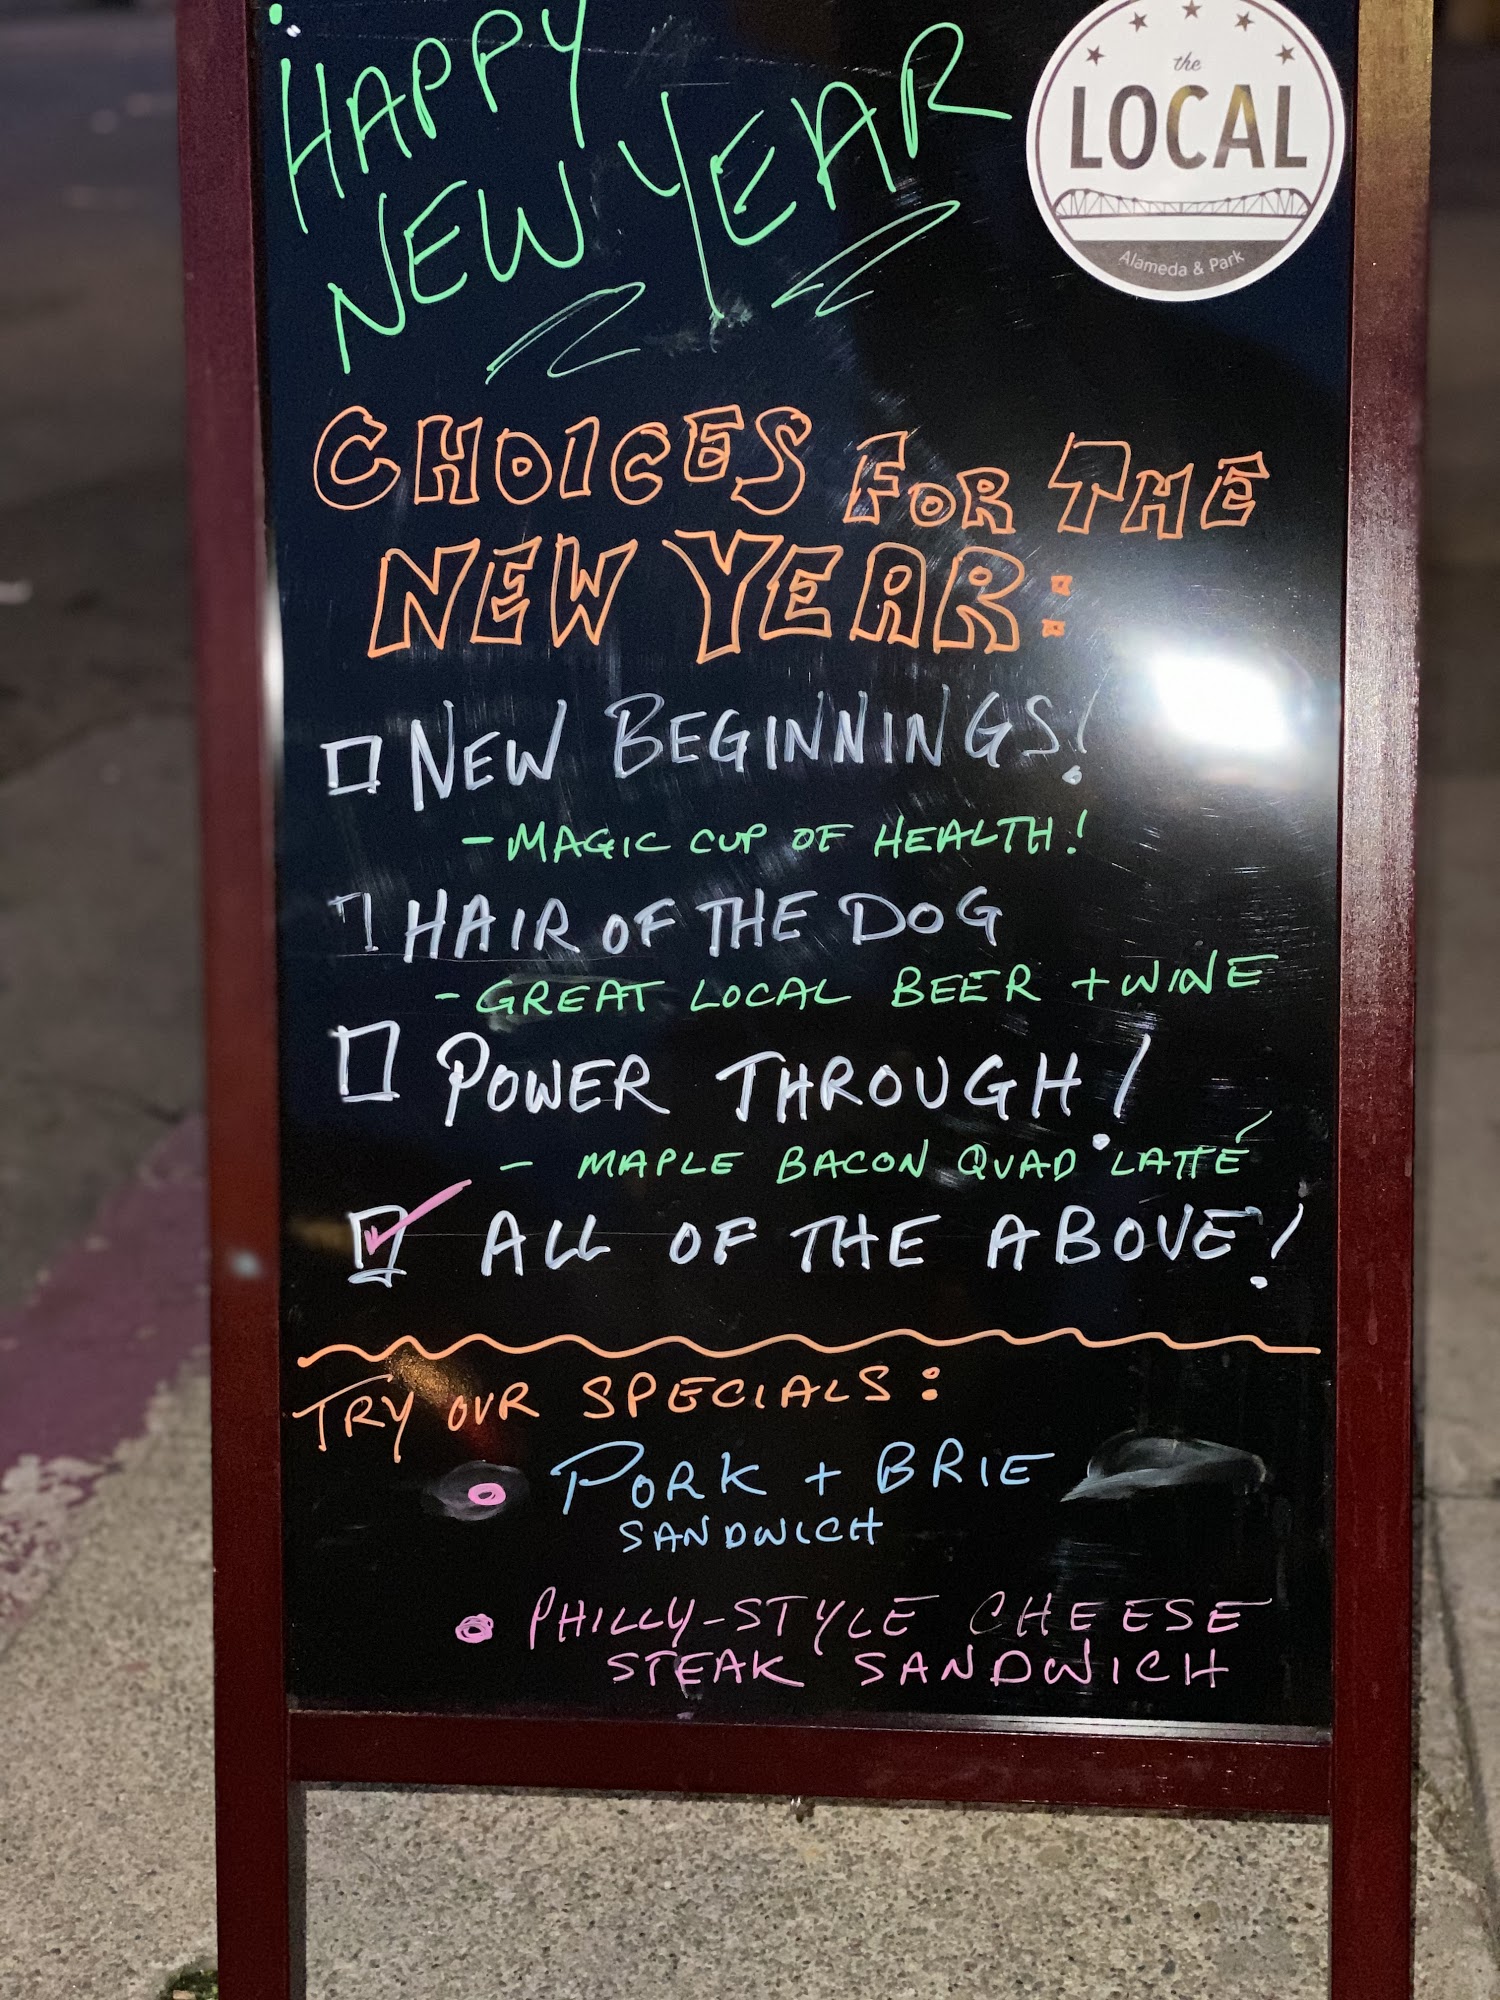 HAPPY
NEW YEAR
the
LOCAL
Alameda & Park
CHOICES FOR THE
NEW YEAR:
NEW BEGINNINGS!
- MAGIC CUP OF HEALTH!
HAIR OF THE DOG
- GREAT LOCAL BEER + WINE
POWER THROUGH!
- MAPLE BACON QUAD LATTÉ
ALL OF THE ABOVE!
TRY OUR SPECIALS:
PORK + BRIE
SANDWICH
PHILLY-STYLE CHEESE
STEAK SANDWICH